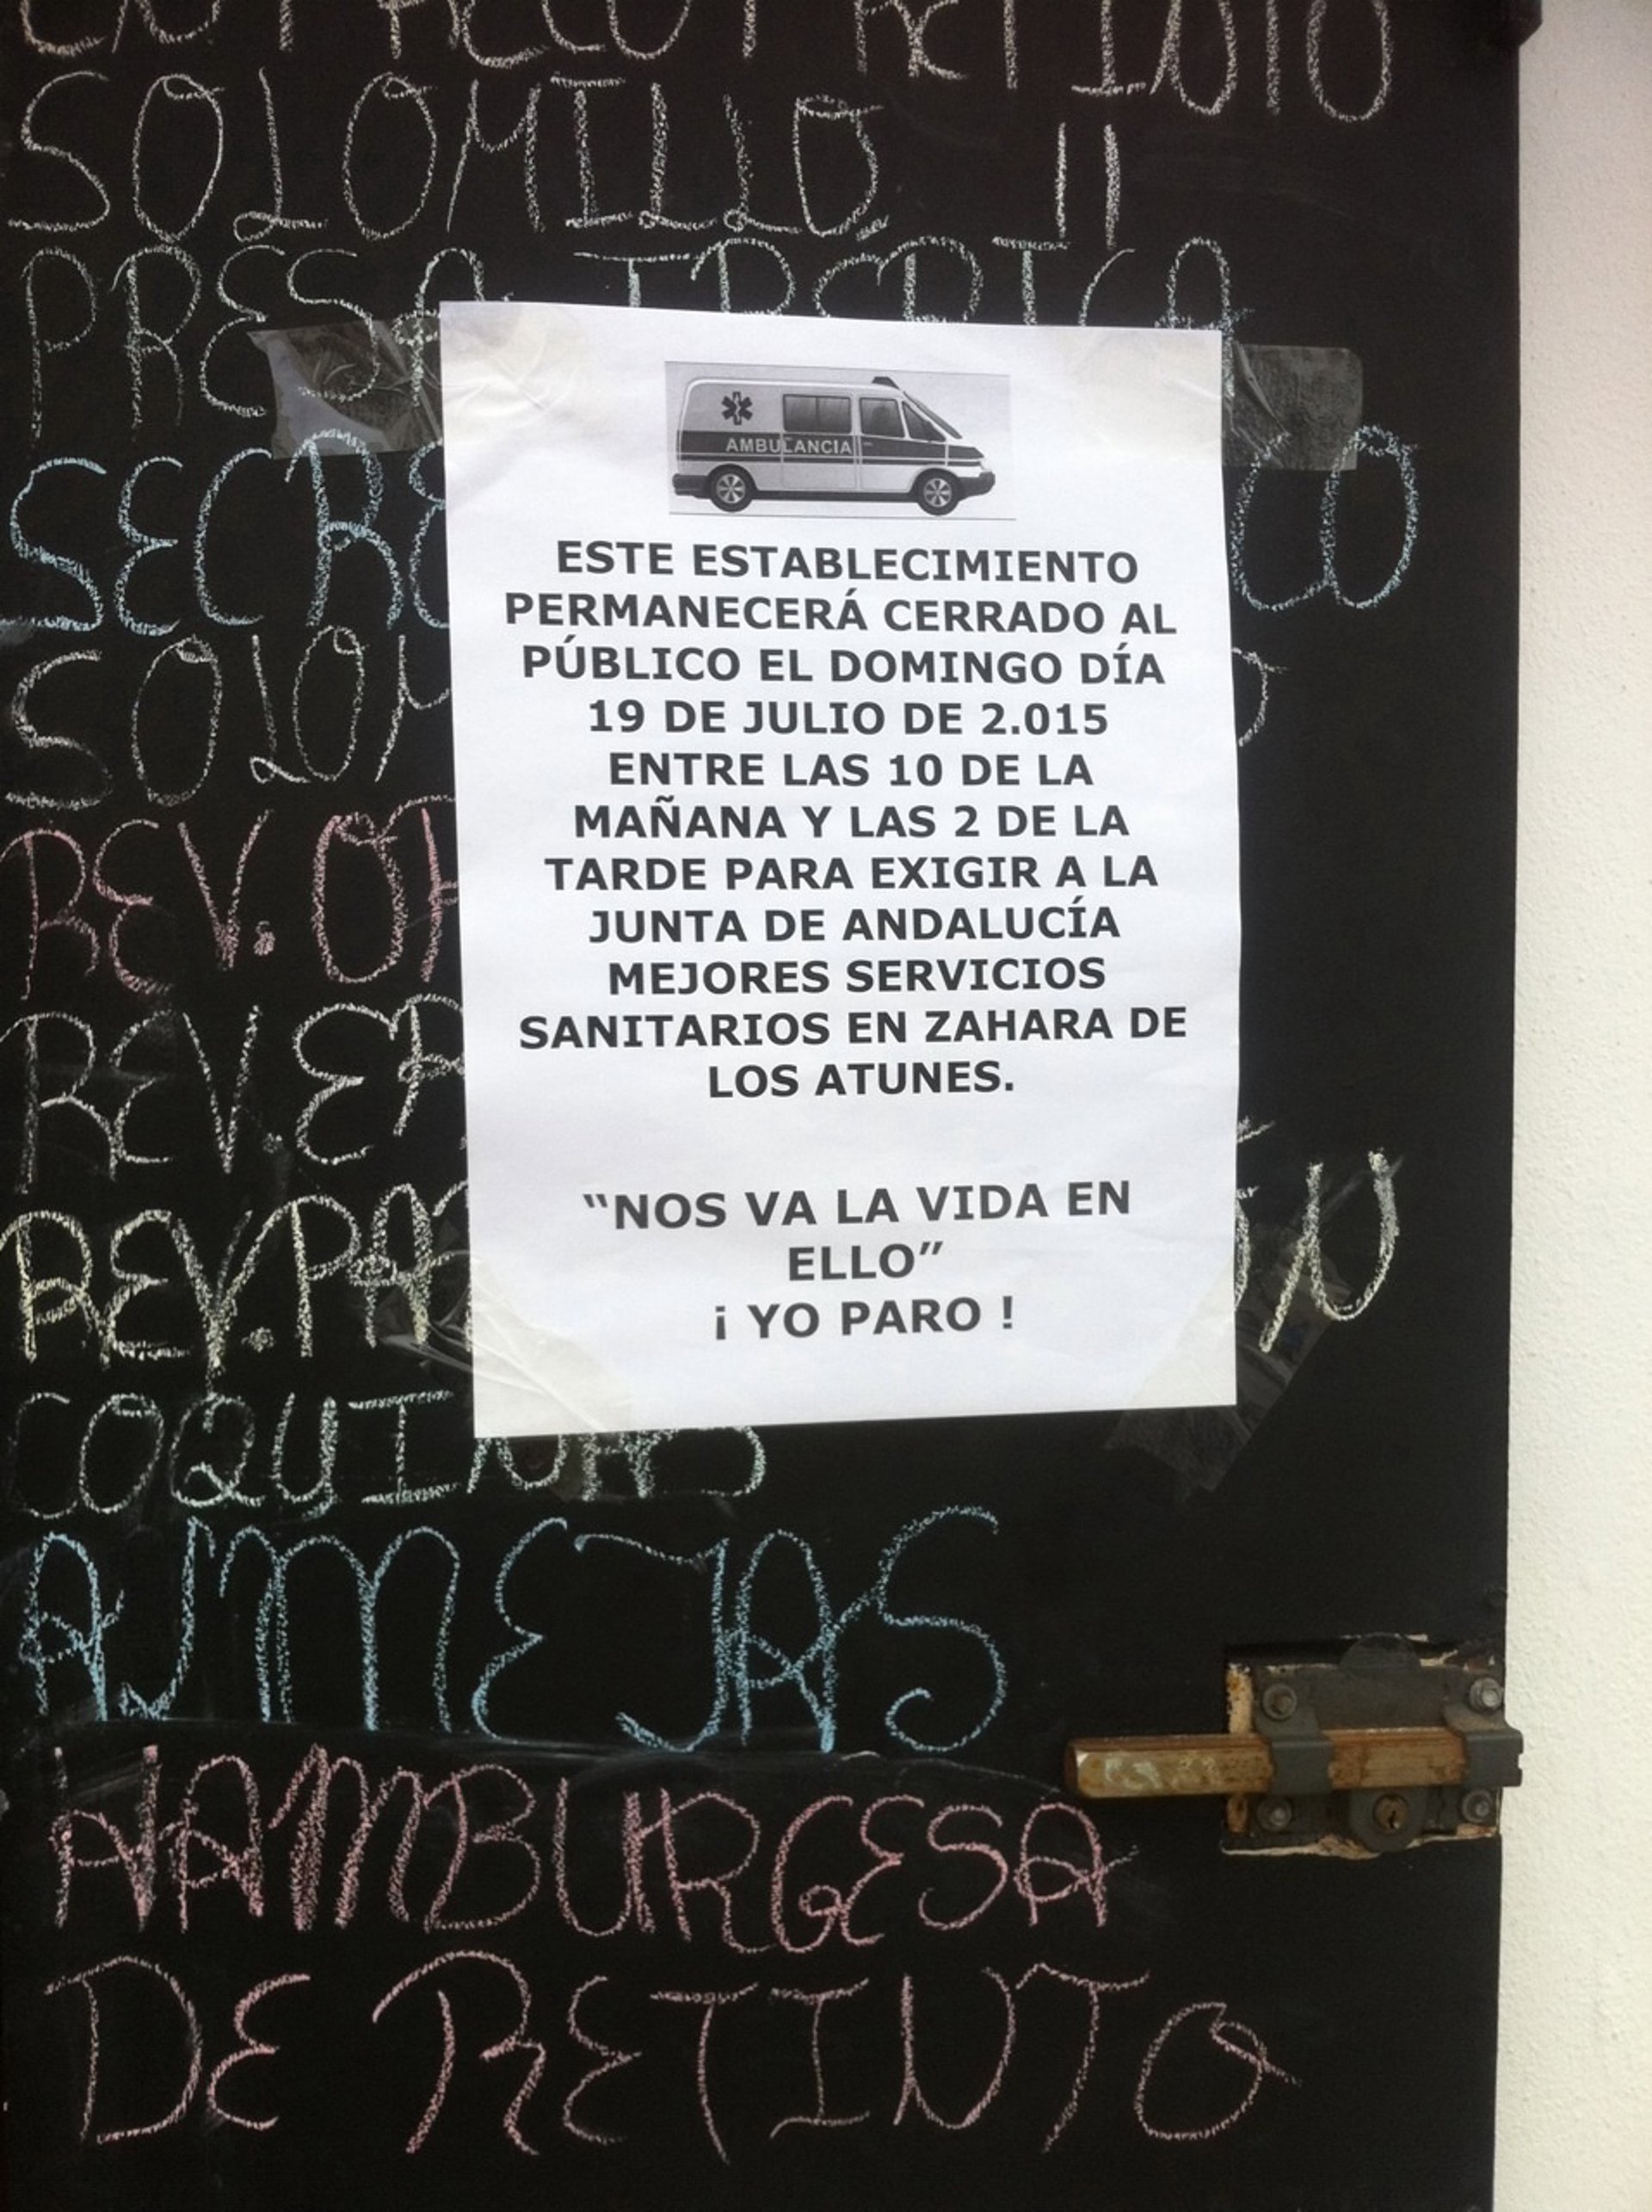 RETINTO
SOLOMILLO "
PRESA IBERICA
AMBULANCIA
ESTE ESTABLECIMIENTO
PERMANECERÁ CERRADO AL
PÚBLICO EL DOMINGO DÍA
19 DE JULIO DE 2.015
ENTRE LAS 10 DE LA
MAÑANA Y LAS 2 DE LA
TARDE PARA EXIGIR A LA
JUNTA DE ANDALUCÍA
MEJORES SERVICIOS
SANITARIOS EN ZAHARA DE
LOS ATUNES.
“NOS VA LA VIDA EN
ELLO”
¡ YO PARO !
REV.
REV.
REV.
COQUINAS
ALMEJAS
HAMBURGESA
DE RETINTO